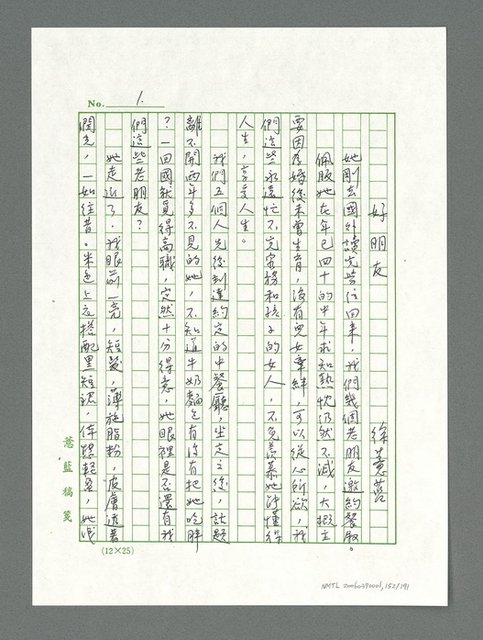 No. 1.
好朋友
徐薏藍
她剛去國外讀完學位回來，我們幾個老朋友邀約餐敘。
佩服她在年已四十的中年求知熱忱仍然不減，大概主
要因為婚後未曾生育，沒有兒女牽絆，可以從心所欲，我
們這些永遠忙不完家務和孩子的女人，不免羨慕她才懂得
人生，享受人生。
我們五個人先後到達約定的中餐廳，坐定之後，話題
離不開兩年多不見的她，不知道牛奶麵包有沒有把她吃胖
？一回國就覓得高職，定然十分得意，她眼裡是否還有我
們這些老朋友？
她走近了，我眼前一亮，短髮，薄施脂粉，皮膚透著
潤光，一如往昔。米色上衣搭配黑短裙，体態輕盈，她淺
薏藍稿箋
(12×25)
NMTL 20060390001, 152/191